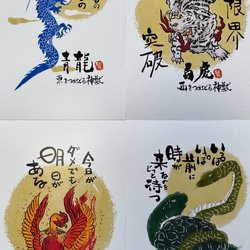 の
青龍
東をつかさどる神獣
限界
突破
白虎
西をつかさどる神獣
今日が
ダメでも
明日が
ある
いっぱい
いっぱい
前に
時が
来るのを
じっと待つ